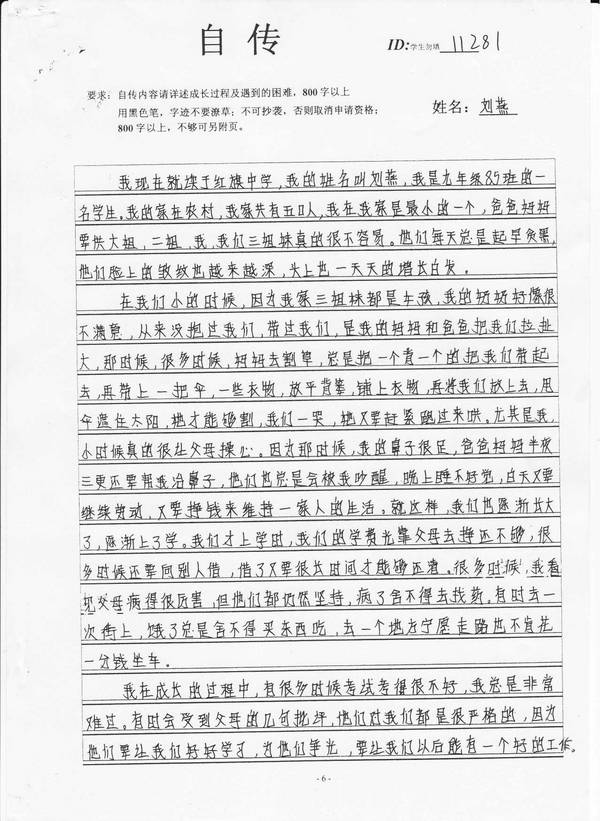 自传
ID:学生勿填 11281
要求：自传内容请详述成长过程及遇到的困难，800字以上
用黑色笔，字迹不要潦草；不可抄袭，否则取消申请资格；
800字以上，不够可另附页。
姓名：刘燕
我现在就读于红旗中学，我的姓名叫刘燕，我是九年级85班的一
名学生。我的家在农村，我家共有五口人，我在我家是最小的一个，爸爸妈妈
要供大姐，二姐，我，我们三姐妹真的很不容易。他们每天总是起早贪黑，
他们脸上的皱纹也越来越深，头上也一天天的增长白发。
在我们小的时候，因为我家三姐妹都是女孩，我的奶奶好像很
不满意，从来没抱过我们，带过我们，是我的妈妈和爸爸把我们拉扯
大，那时候，很多时候，妈妈去割草，总是把一个背一个的把我们带起
去，再带上一把伞，一些衣物，放平背篓，铺上衣物，再将我们放上去，用
伞遮住太阳，她才能够割，我们一哭，她又要赶紧跑过来哄。尤其是我，
小时候真的很让父母操心。因为那时候，我的鼻子很足，爸爸妈妈半夜
三更还要帮我治鼻子，他们也总是会被我吵醒，晚上睡不好觉，白天又要
继续劳动，又要挣钱来维持一家人的生活。就这样，我们也逐渐长大
了，逐渐上了学。我们才上学时，我们的学费光靠父母去挣还不够，很
多时候还要向别人借，借了又要很长时间才能够还清。很多时候，我看
见父母病得很厉害，但他们都仍然坚持，病了舍不得去找药。有时去一
次街上，饿了总是舍不得买东西吃，去一个地方宁愿走路也不肯花
一分钱坐车。
我在成长的过程中，有很多时候考试考得很不好，我总是非常
难过。有时会受到父母的几句批评，他们对我们都是很严格的，因为
他们要让我们好好学习，为他们争光，要让我们以后能有一个好的工作。
- 6 -